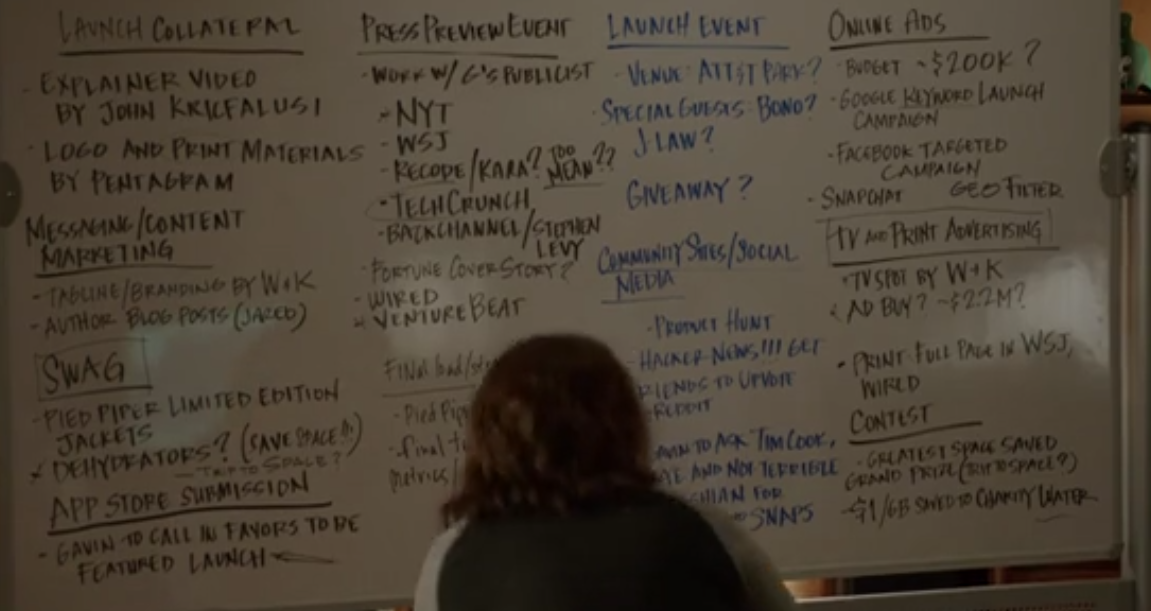 LAUNCH COLLATERAL
- EXPLAINER VIDEO
BY JOHN KRICFALUSI
- LOGO AND PRINT MATERIALS
BY PENTAGRAM
MESSAGING/CONTENT
MARKETING
- TAGLINE/BRANDING BY W+K
- AUTHOR BLOG POSTS (JARED)
SWAG
- PIED PIPER LIMITED EDITION
JACKETS
DEHYDRATORS? (SAVE SPACE!!)
TRIP TO SPACE?
APP STORE SUBMISSION
- GAVIN TO CALL IN FAVORS TO BE
FEATURED LAUNCH
PRESS PREVIEW EVENT
- WORK W/ G'S PUBLICIST
- NYT
- WSJ
- RECODE/KARA? TOO
MEAN??
- TECHCRUNCH
- BACKCHANNEL/STEPHEN
LEVY
- FORTUNE COVER STORY?
- WIRED
VENTUREBEAT
FINal load/
- Pied
- final
metrics/
LAUNCH EVENT
- VENUE: AT&T PARK?
- SPECIAL GUESTS: BONO?
J-LAW?
GIVEAWAY?
COMMUNITY SITES/SOCIAL
MEDIA
- PRODUCT HUNT
- HACKER NEWS!!! GET
TO UPVOTE
REDDIT
TO ASK TIM COOK,
AND NOT TERRIBLE
FOR
SNAPS
ONLINE ADS
- BUDGET ~$200K?
- GOOGLE KEYWORD LAUNCH
CAMPAIGN
- FACEBOOK TARGETED
CAMPAIGN
- SNAPCHAT GEO FILTER
TV AND PRINT ADVERTISING
- TV SPOT BY W+K
AD BUY? ~$2.2M?
- PRINT: FULL PAGE IN WSJ,
WIRED
CONTEST
- GREATEST SPACE SAVED
GRAND PRIZE (TRIP TO SPACE?)
- $1/GB SAVED TO CHARITY WATER